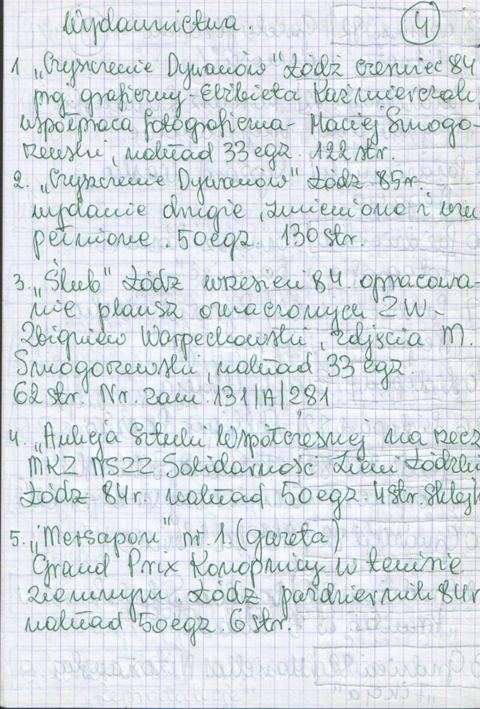 Wydawnictwa. 4
1 „Czyszczenie Dywanów" Łódź czerwiec 84
proj. graficzny - Elżbieta Kaźmierczak,
współpraca fotograficzna - Maciej Smogo-
rzewski, nakład 33 egz. 122 str.
2. „Czyszczenie Dywanów" Łódź 85 r.
wydanie drugie, zmienione i uzu
pełnione. 50 egz. 130 str.
3. „Ślub" Łódź wrzesień 84. opracowa-
nie plansz oznaczonych ZW -
Zbigniew Warpechowski, zdjęcia M.
Smogorzewski, nakład 33 egz.
62 str. Nr. zam. 131/A/281
4. „Aukcja Sztuki Współczesnej na rzecz
MKZ NSZZ Solidarność Ziemi Łódzki
Łódź 84 r. nakład 50 egz. 4 str.
5. „Mersaport" nr. 1 (gazeta)
Grand Prix Konopnicy w tenisie
ziemnym. Łódź październik 84 r
nakład 50 egz. 6 str.